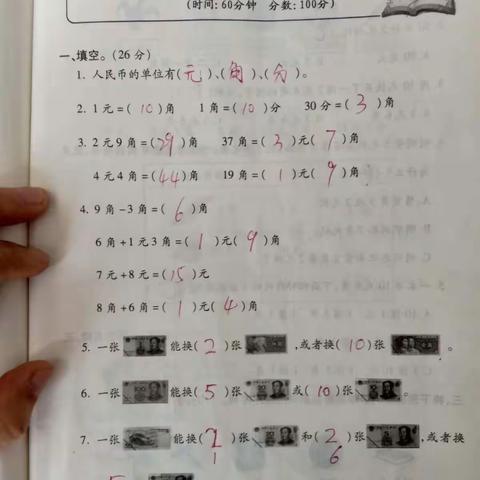 (时间:60分钟 分数:100分)
一、填空。(26分)
1. 人民币的单位有(元)、(角)、(分)。
2. 1元=(10)角 1角=(10)分 30分=(3)角
3. 2元9角=(29)角 37角=(3)元(7)角
4元4角=(44)角 19角=(1)元(9)角
4. 9角-3角=(6)角
6角+1元3角=(1)元(9)角
7元+8元=(15)元
8角+6角=(1)元(4)角
5. 一张 能换(2)张 ,或者换(10)张 。
6. 一张 能换(5)张 或(10)张 。
7. 一张 能换( )张 和(2)张 ,或者换
1 6
5